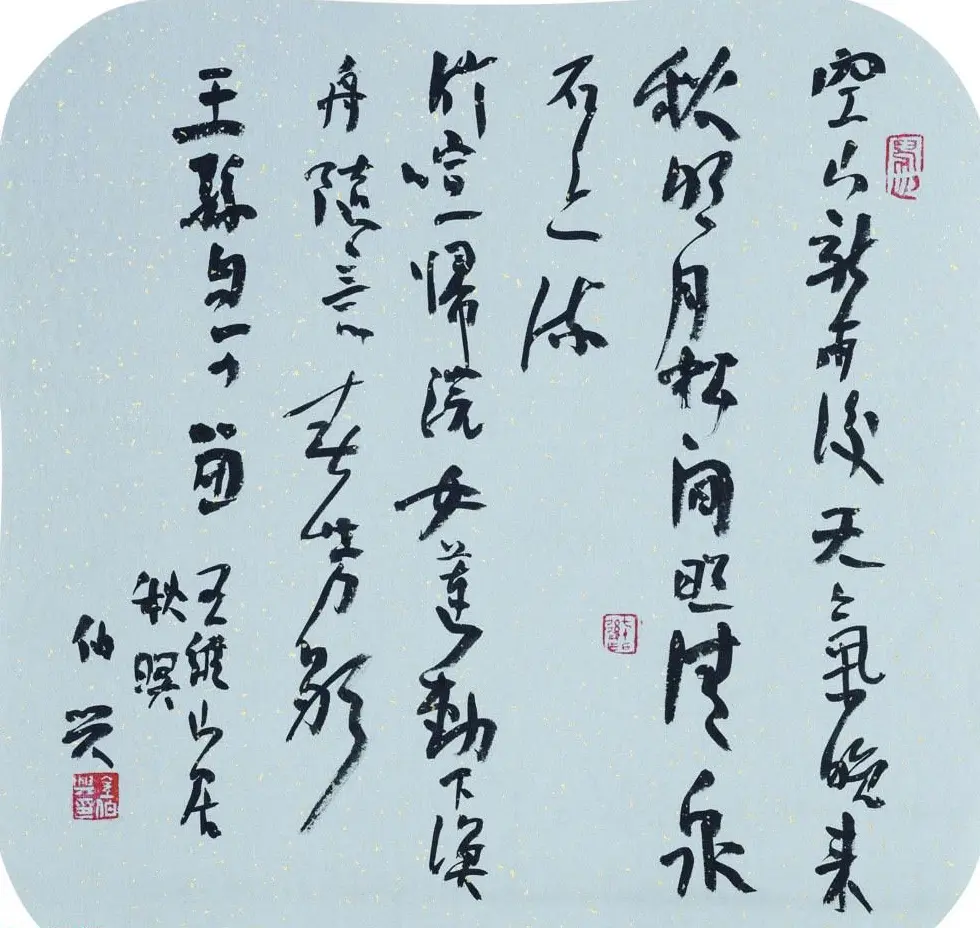 空山新雨後天氣晚来
秋明月松間照清泉
石上流
竹喧帰浣女蓮動下漁
舟隨意春芳歇
王孫自可留
王維山居
秋暝
伯兴